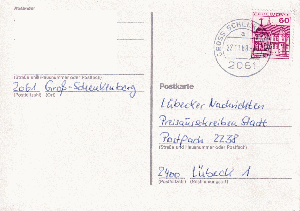 Absender
(Straße und Hausnummer oder Postfach)
2061 Groß-Schenkenberg
(Postleitzahl) (Ort)
60
2061
Postkarte
Lübecker Nachrichten
Preisausschreiben Stadt
Postfach 2238
(Straße und Hausnummer oder Postfach)
2400 Lübeck 1
(Postleitzahl) (Bestimmungsort)